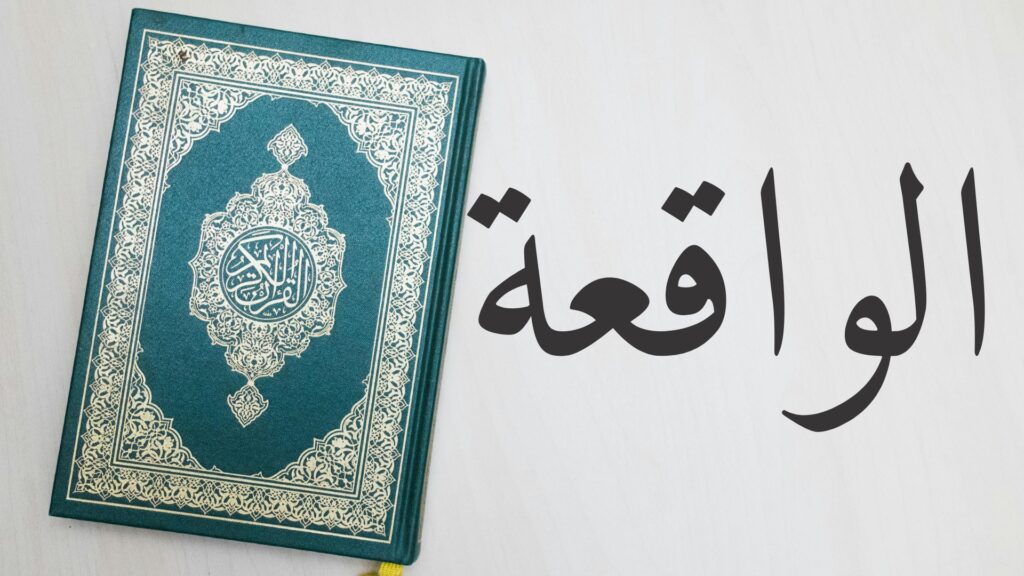 الواقعة
القرآن الكريم